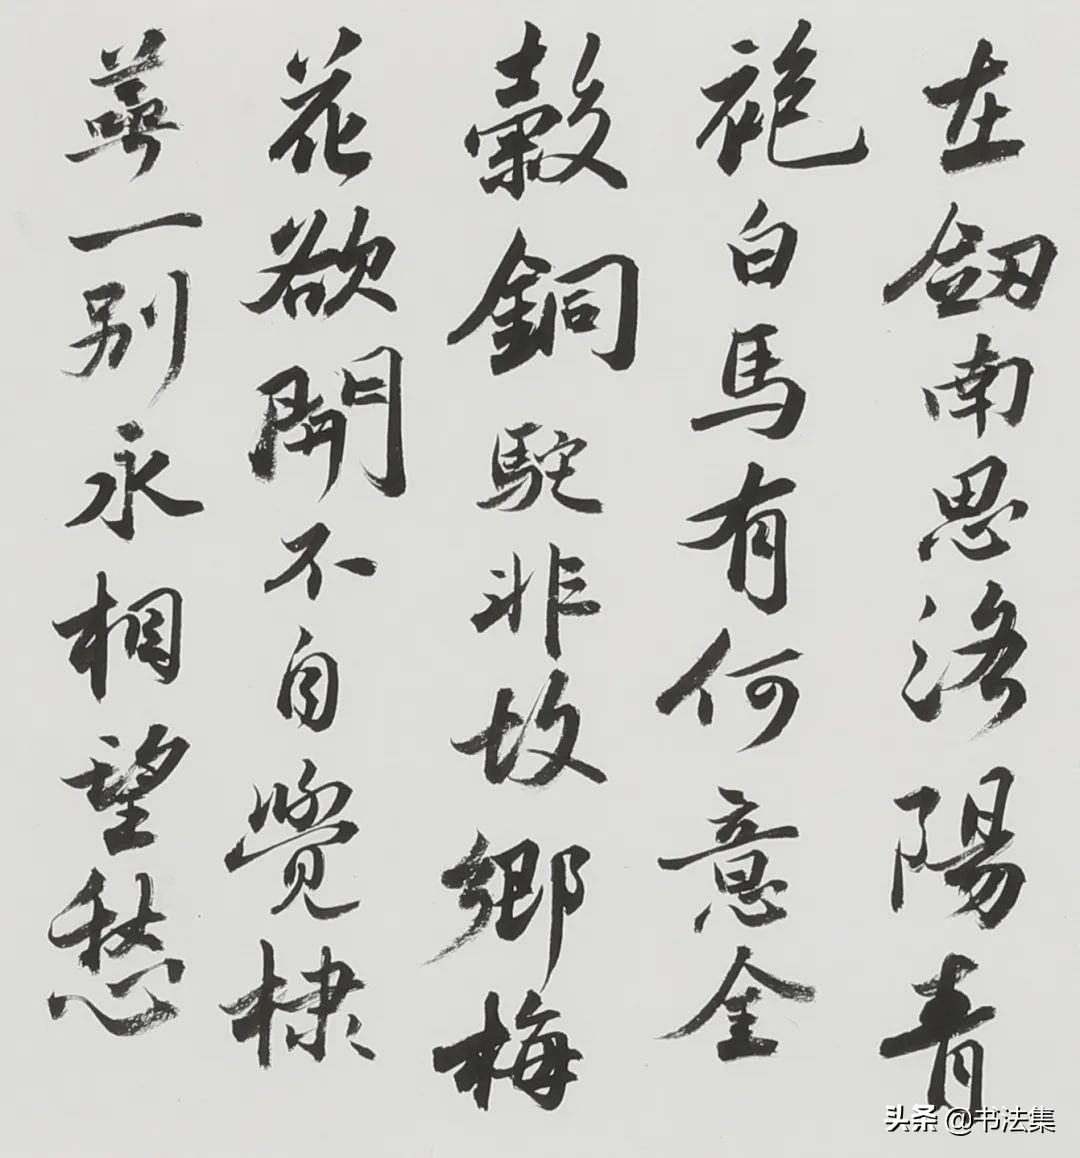 在劒南思洛陽青
袍白馬有何意金
穀銅駝非故鄉梅
花欲開不自覺棣
萼一別永相望愁
头条 @书法集